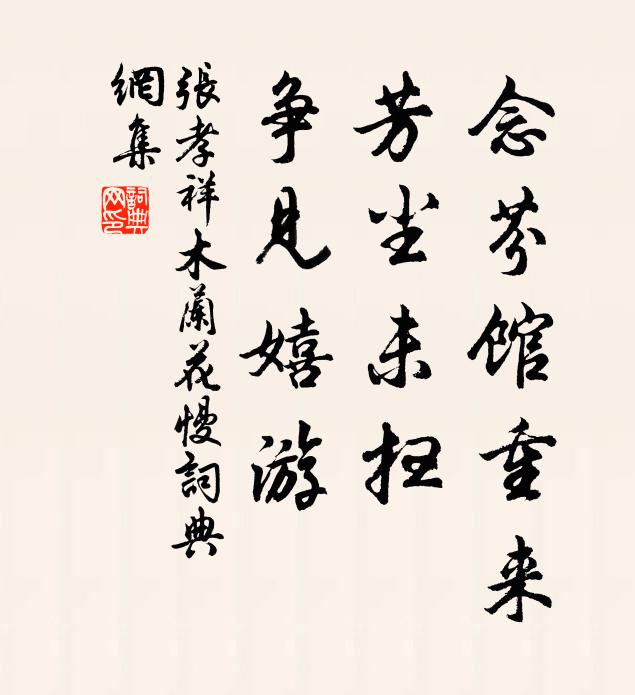 念芬館重来
芳尘未扫
争見嬉游
張孝祥木蘭花慢詞典
網集
詞典网印